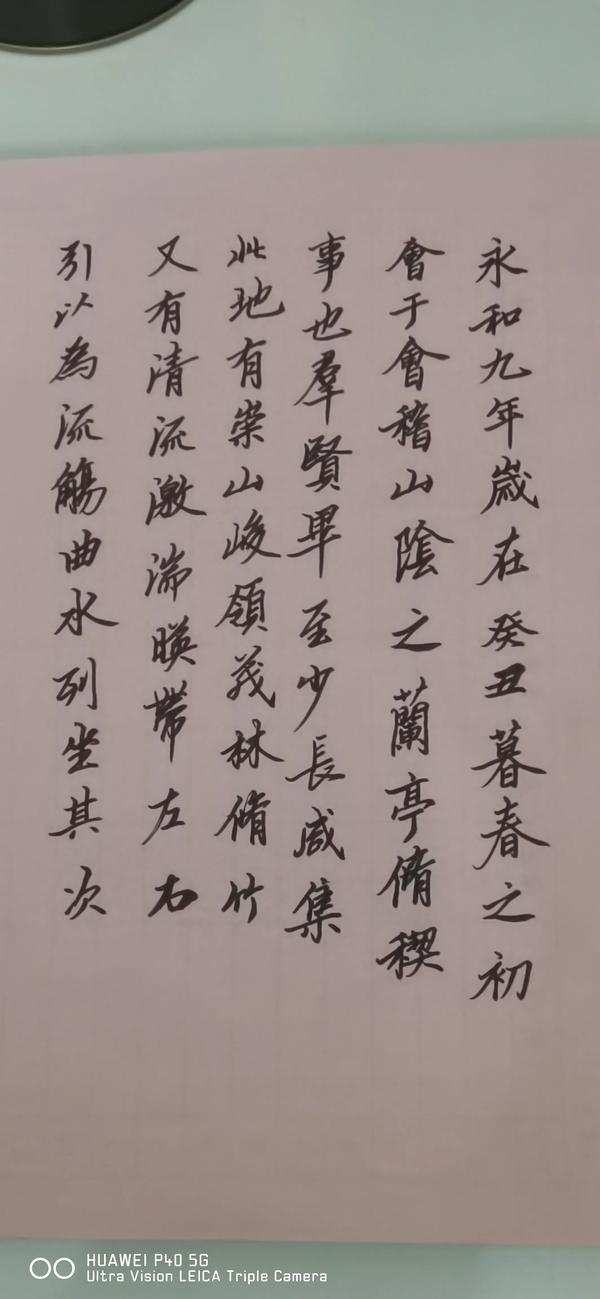 永和九年歲在癸丑暮春之初
會于會稽山陰之蘭亭脩稧
事也羣賢畢至少長咸集
此地有崇山峻領茂林脩竹
又有清流激湍暎帶左右
引以為流觴曲水列坐其次
HUAWEI P40 5G
Ultra Vision LEICA Triple Camera